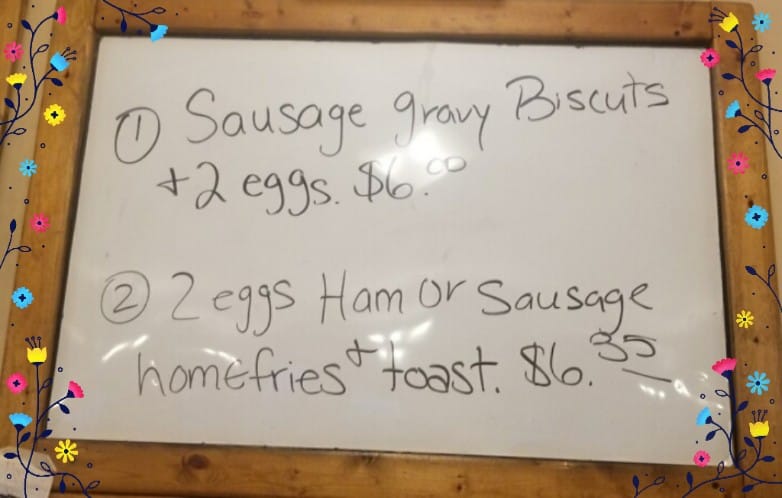 ① Sausage gravy Biscuts
+2 eggs. $6.00
② 2 eggs Ham or Sausage
homefries + toast. $6.35